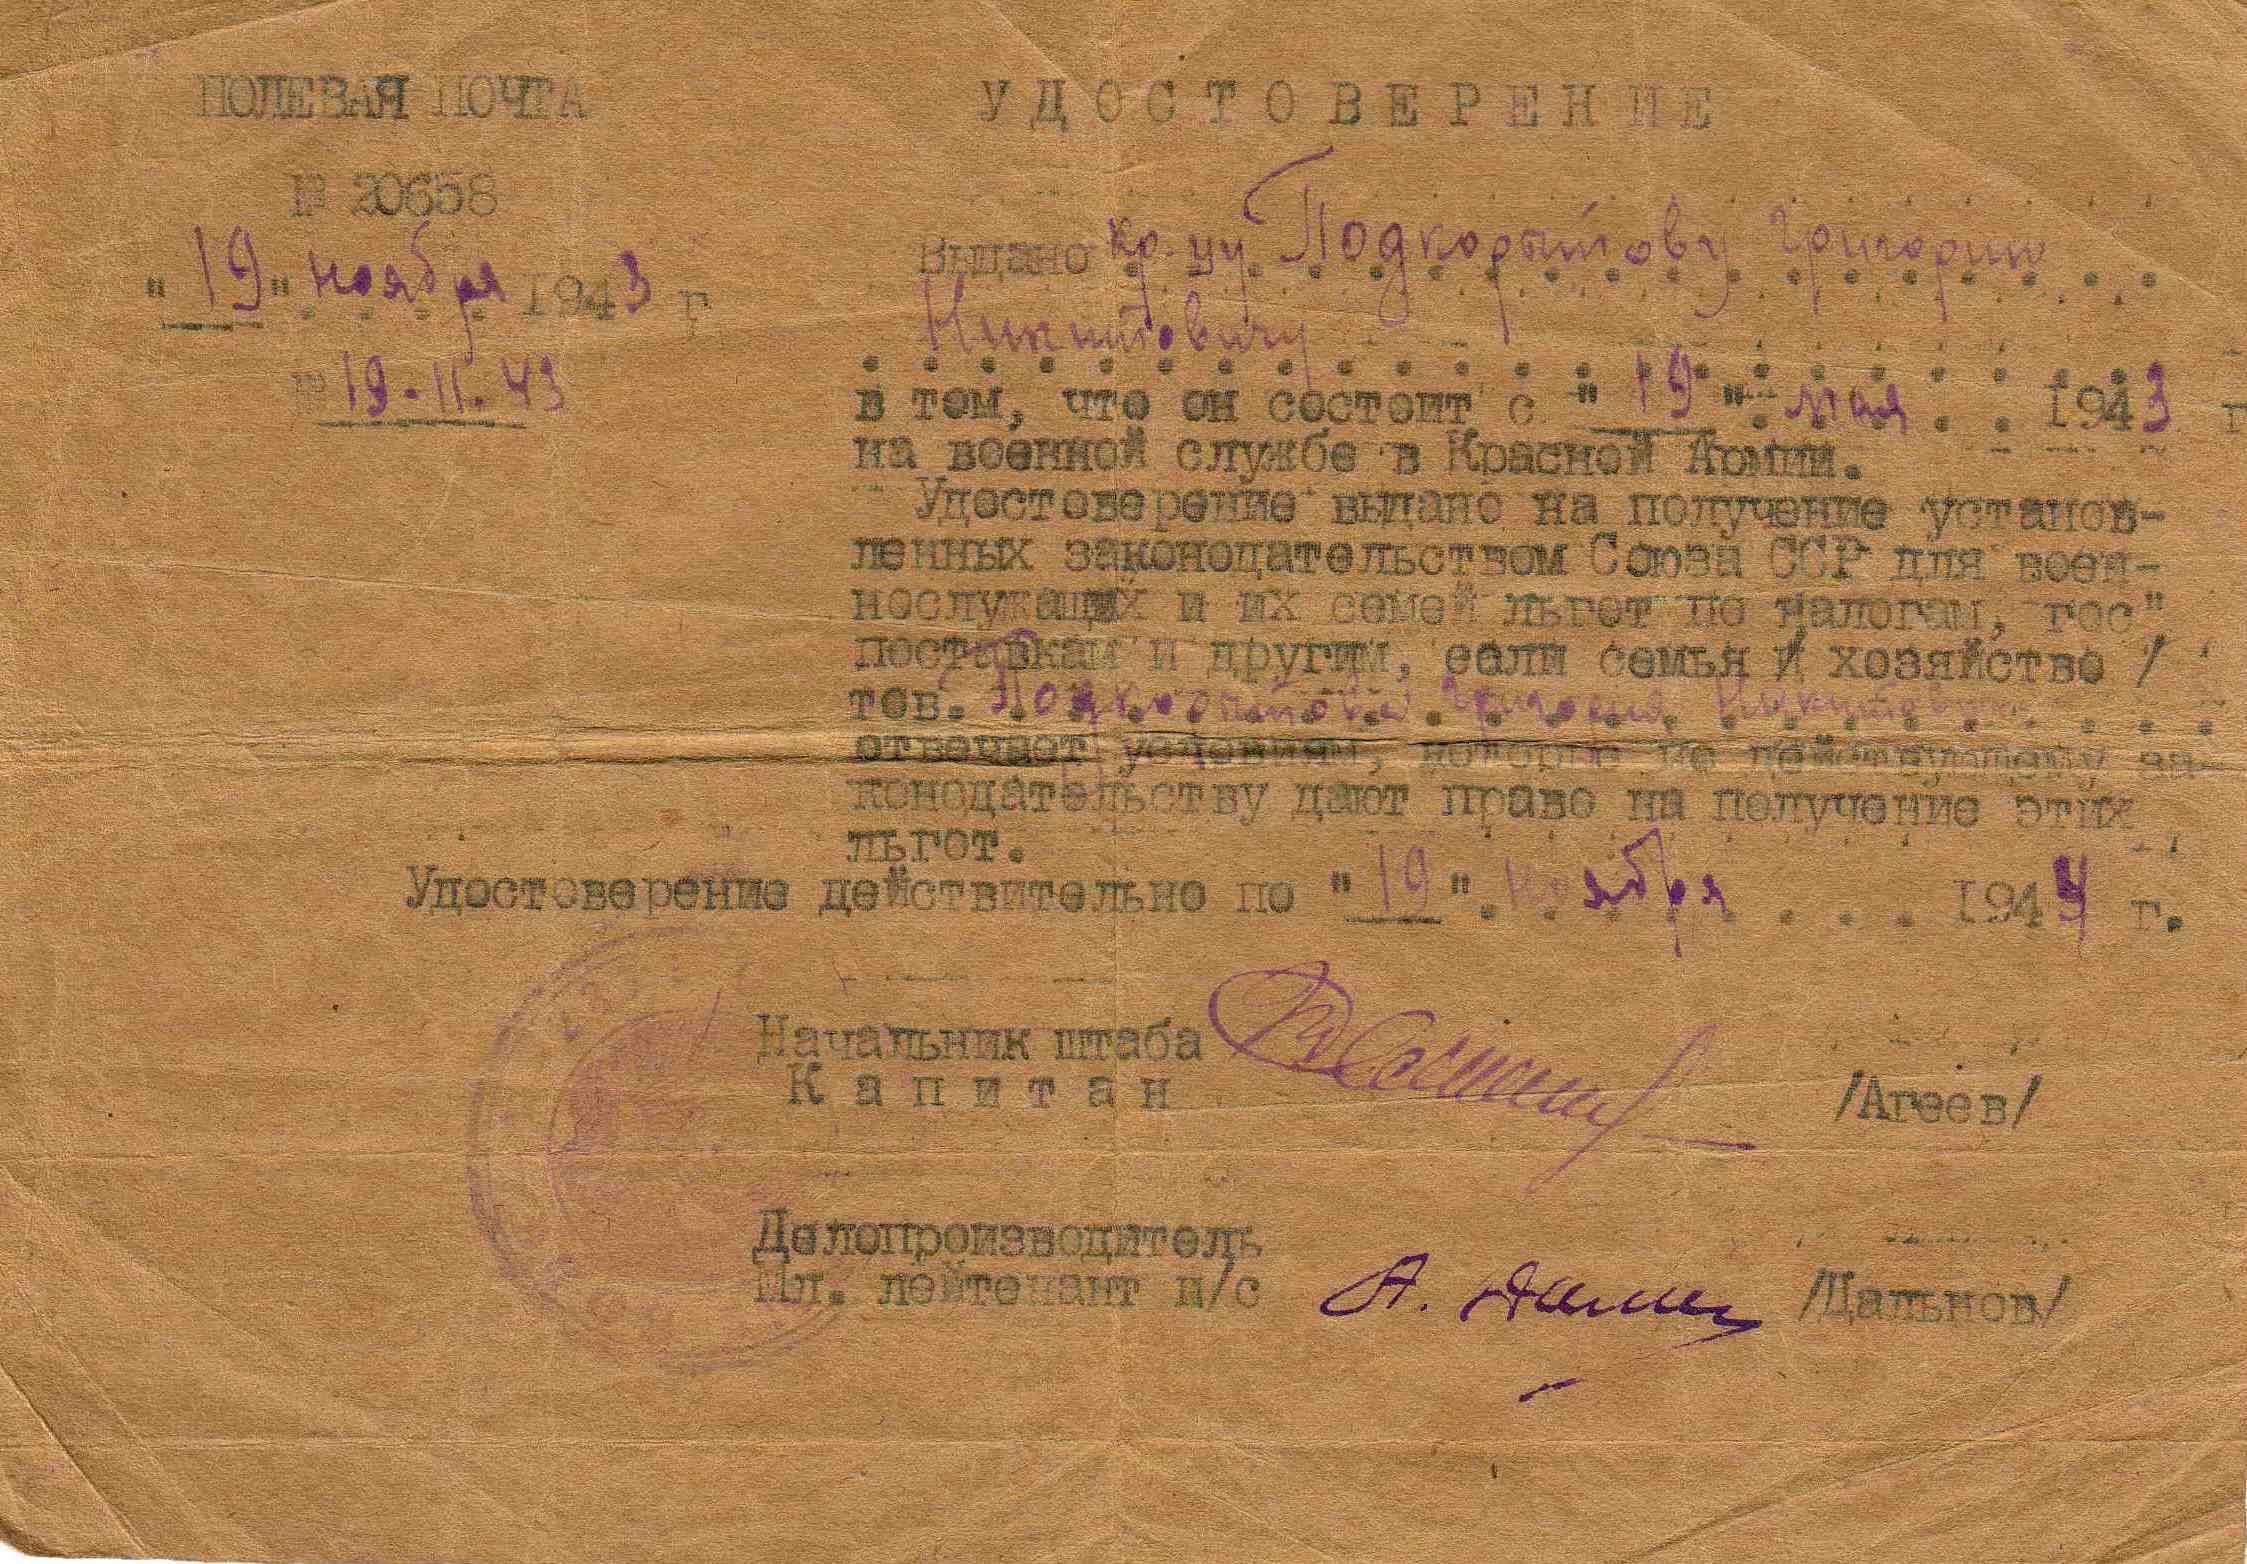 ПОЛЕВАЯ ПОЧТА
№ 20658
"19" ноября 1943 г
19-11-43
УДОСТОВЕРЕНИЕ
Выдано кр-цу Подкорытову Григорию
Никитовичу
в том, что он состоит с "19" мая 1943 г
на военной службе в Красной Армии.
Удостоверение выдано на получение установ-
ленных законодательством Союза ССР для воен-
нослужащих и их семей льгот по налогам, гос"
поставкам и другим, если семья / и хозяйство /
тов. Подкорытова Григория Никитовича
отвечает условиям, которые по действующему за-
конодательству дают право на получение этих
льгот.
Удостоверение действительно по "19" ноября 1944 г.
Начальник штаба
Капитан /Агеев/
Делопроизводитель
Мл. лейтенант и/с /Дальнов/